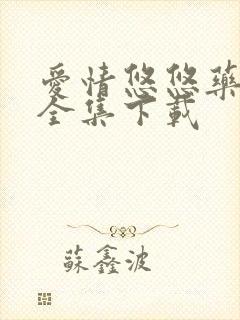 愛情悠悠藥
全集下載
蘇鑫波